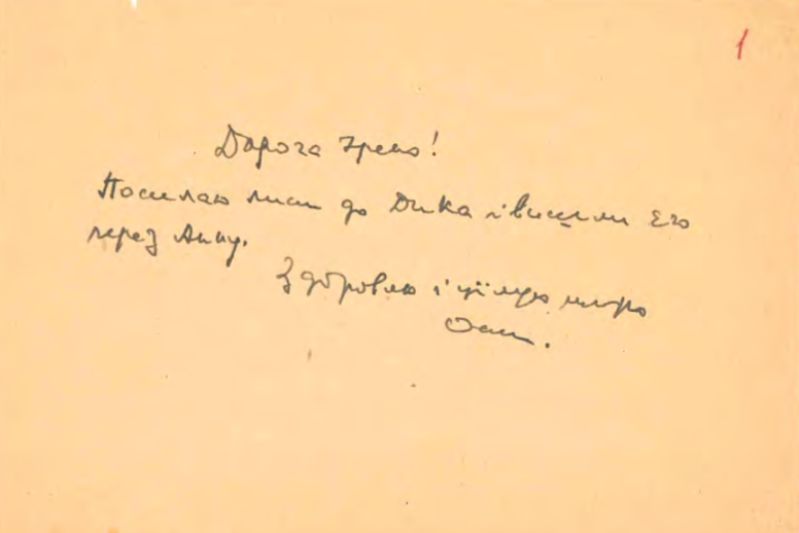 1
Дорога Ірено!
Посилаю лист до Дика і вишли его
через Анну.
Здоровлю і цілую щиро